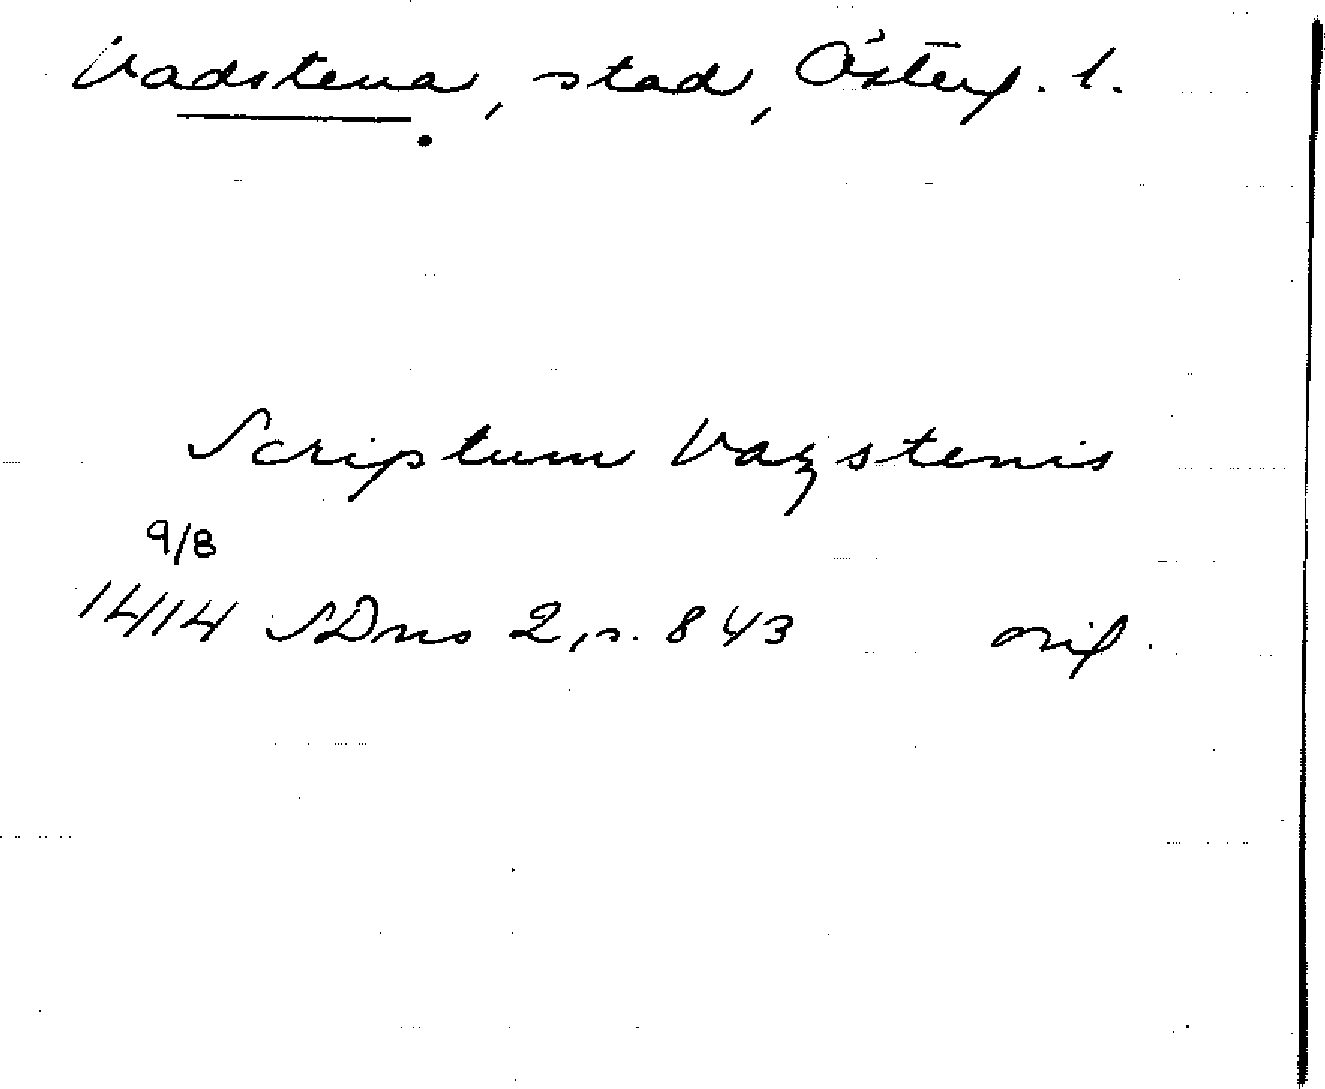 Vadstena, stad, Österg. l.
Scriptum Vazstenis
9/8
1414 SDns 2, s. 843 orig.